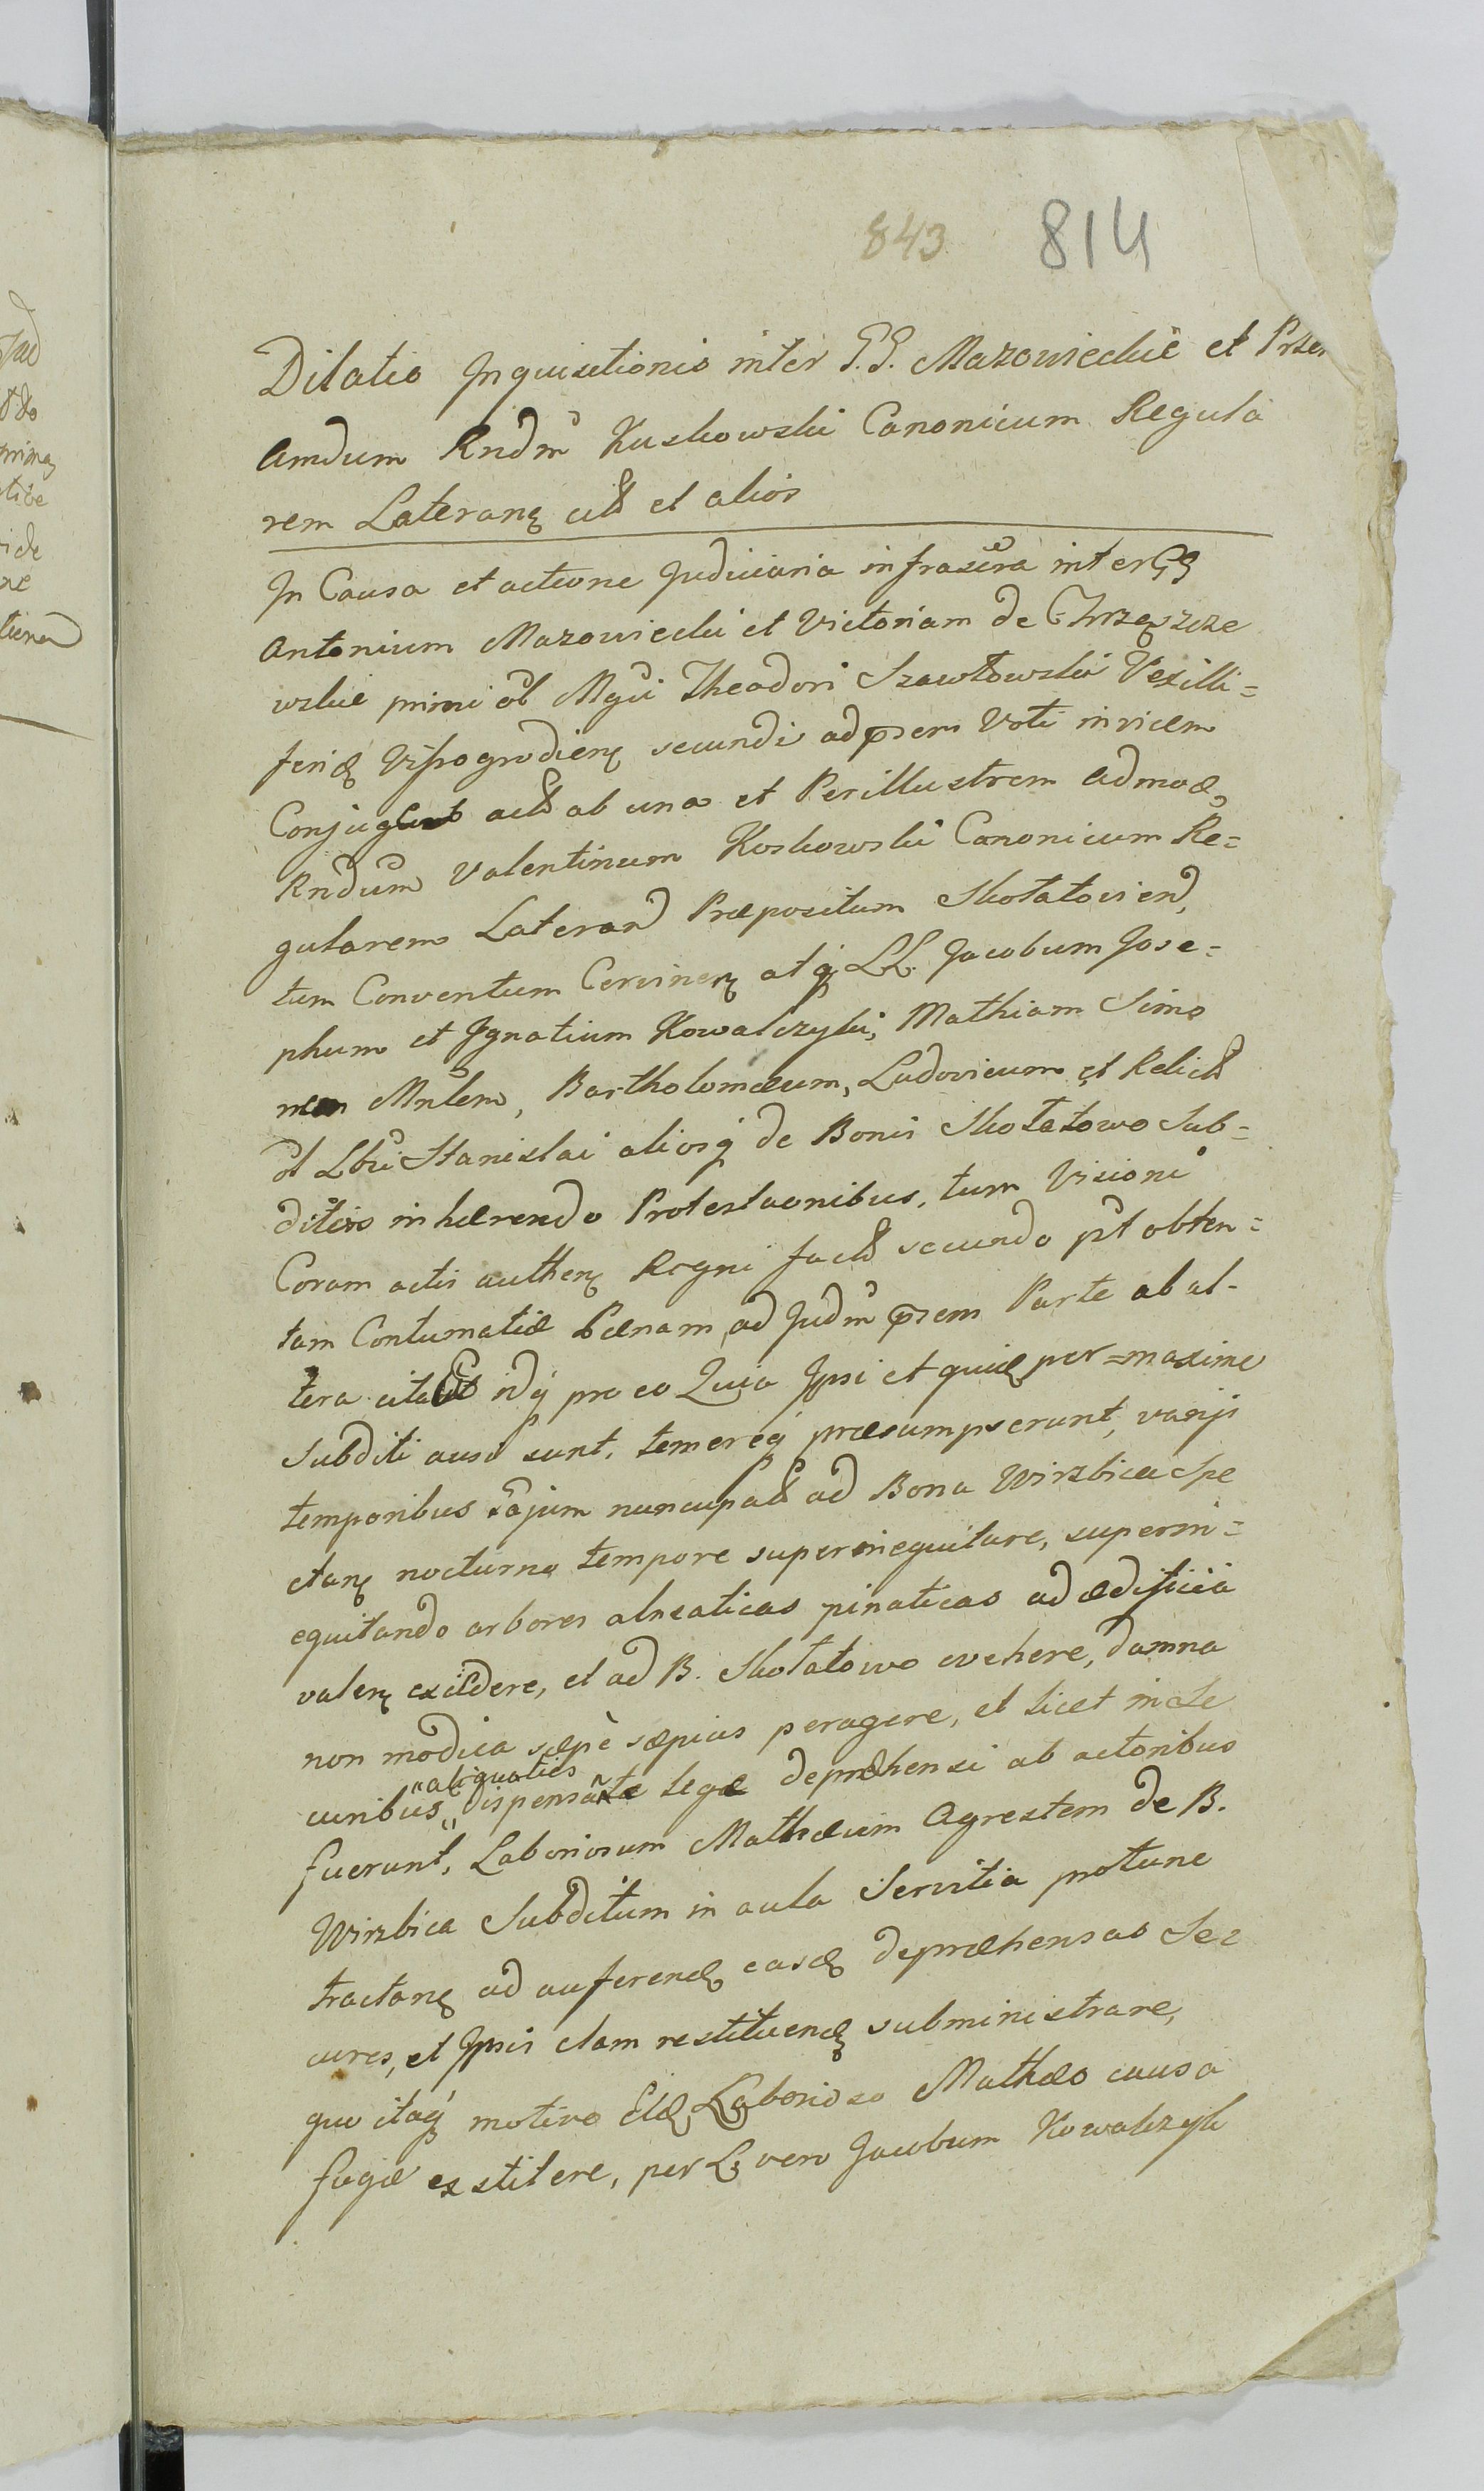 843 814
Dilatio Inquisitionis inter G.G. Mazowieckie et
Amdum Rndm Kuskowski Canonicum Regula
rem Lateranę et alios
In Causa et actione Judiciaria infrascra inter GG
Antonium Mazowiecki et Victoriam de
wskie primi ol Mgci Theodori Szawłowski Vexilli=
feri Vissogrodienę secundi ad prsens Voti invicem
ab una et Perillustrem admod
Rndum Valentinum Koskowski Canonicum Re=
gularem Lateran Præpositum Skołatovien,
tum Conventum Cervinenę atq LL. Jacobum Jose=
phum et Ignatium Kowalczyki, Mathiam Simo
nem Mulem, Bartholomæum, Ludovicum et Relict
ol Lbri Stanislai aliosq de Bonis Skołatowo Sub=
ditos inhærendo Protestaonibus, tum Visioni
Coram actis authenę Regni fact secundo pst obten=
tam Contumatiæ Pænam ad Judm prsens Parte ab al-
tera idq pro eo Quia Ipsi et quidę per=maxime
Subditi ausi sunt, temereq præsumpserunt, varijs
temporibus nuncupat ad Bona Wirzbica Spe
ctanę nocturno tempore superinequitare, superin=
equitando arbores alneaticas pinaticas ad ædificia
valenę excidere, et ad B. Skołatowo evehere, damna
non modica sæpè sæpius peragere, et licet in Se
"aliquoties
curibus " dispensante lege deprehensi ab actoribus
fuerunt, Laboriosum Mathæum Agrestem de B.
Wirzbica Subditum in aula Servitia protunc
tractanę ad auferend easd depræhensas Se=
cures, et Ipsis clam restituend subministrare,
quo itaq motivo Laborioso Mathæo causa
fugæ exstitere, per L. vero Jacobum Kowalczyk